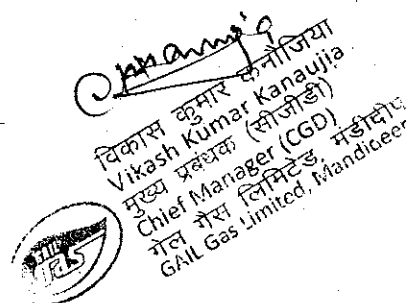 विकास कुमार कनौजिया
Vikash Kumar Kanaujia
मुख्य प्रबंधक (सीजीडी)
Chief Manager (CGD)
गेल गैस लिमिटेड, मंडीदीप
GAIL Gas Limited, Mandideep
Gas